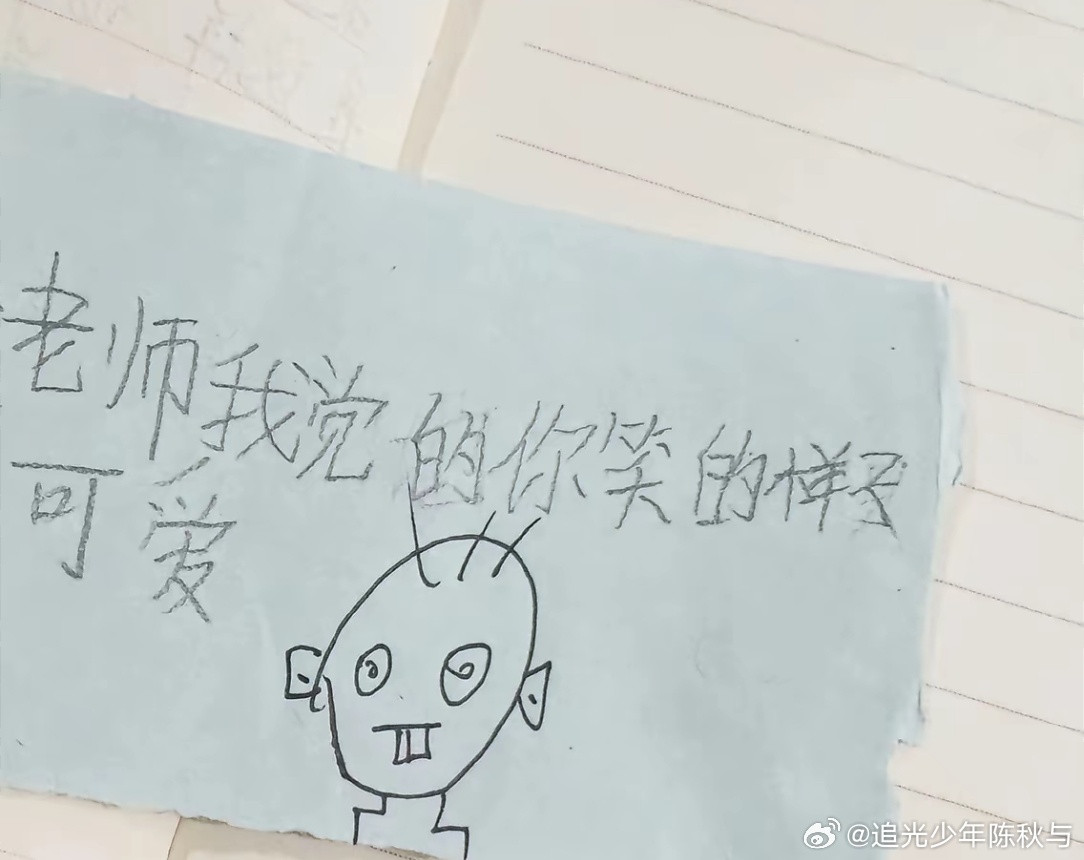 老师我觉的你笑的样子
可爱
@追光少年陈秋与